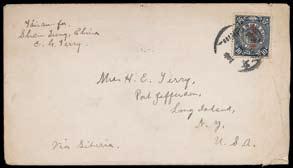 Tainan fu
Shan Tung, China
E. G. Terry.
Miss H. E. Terry,
Port Jefferson,
Long Island,
N. Y.
U. S. A.
Via Siberia.